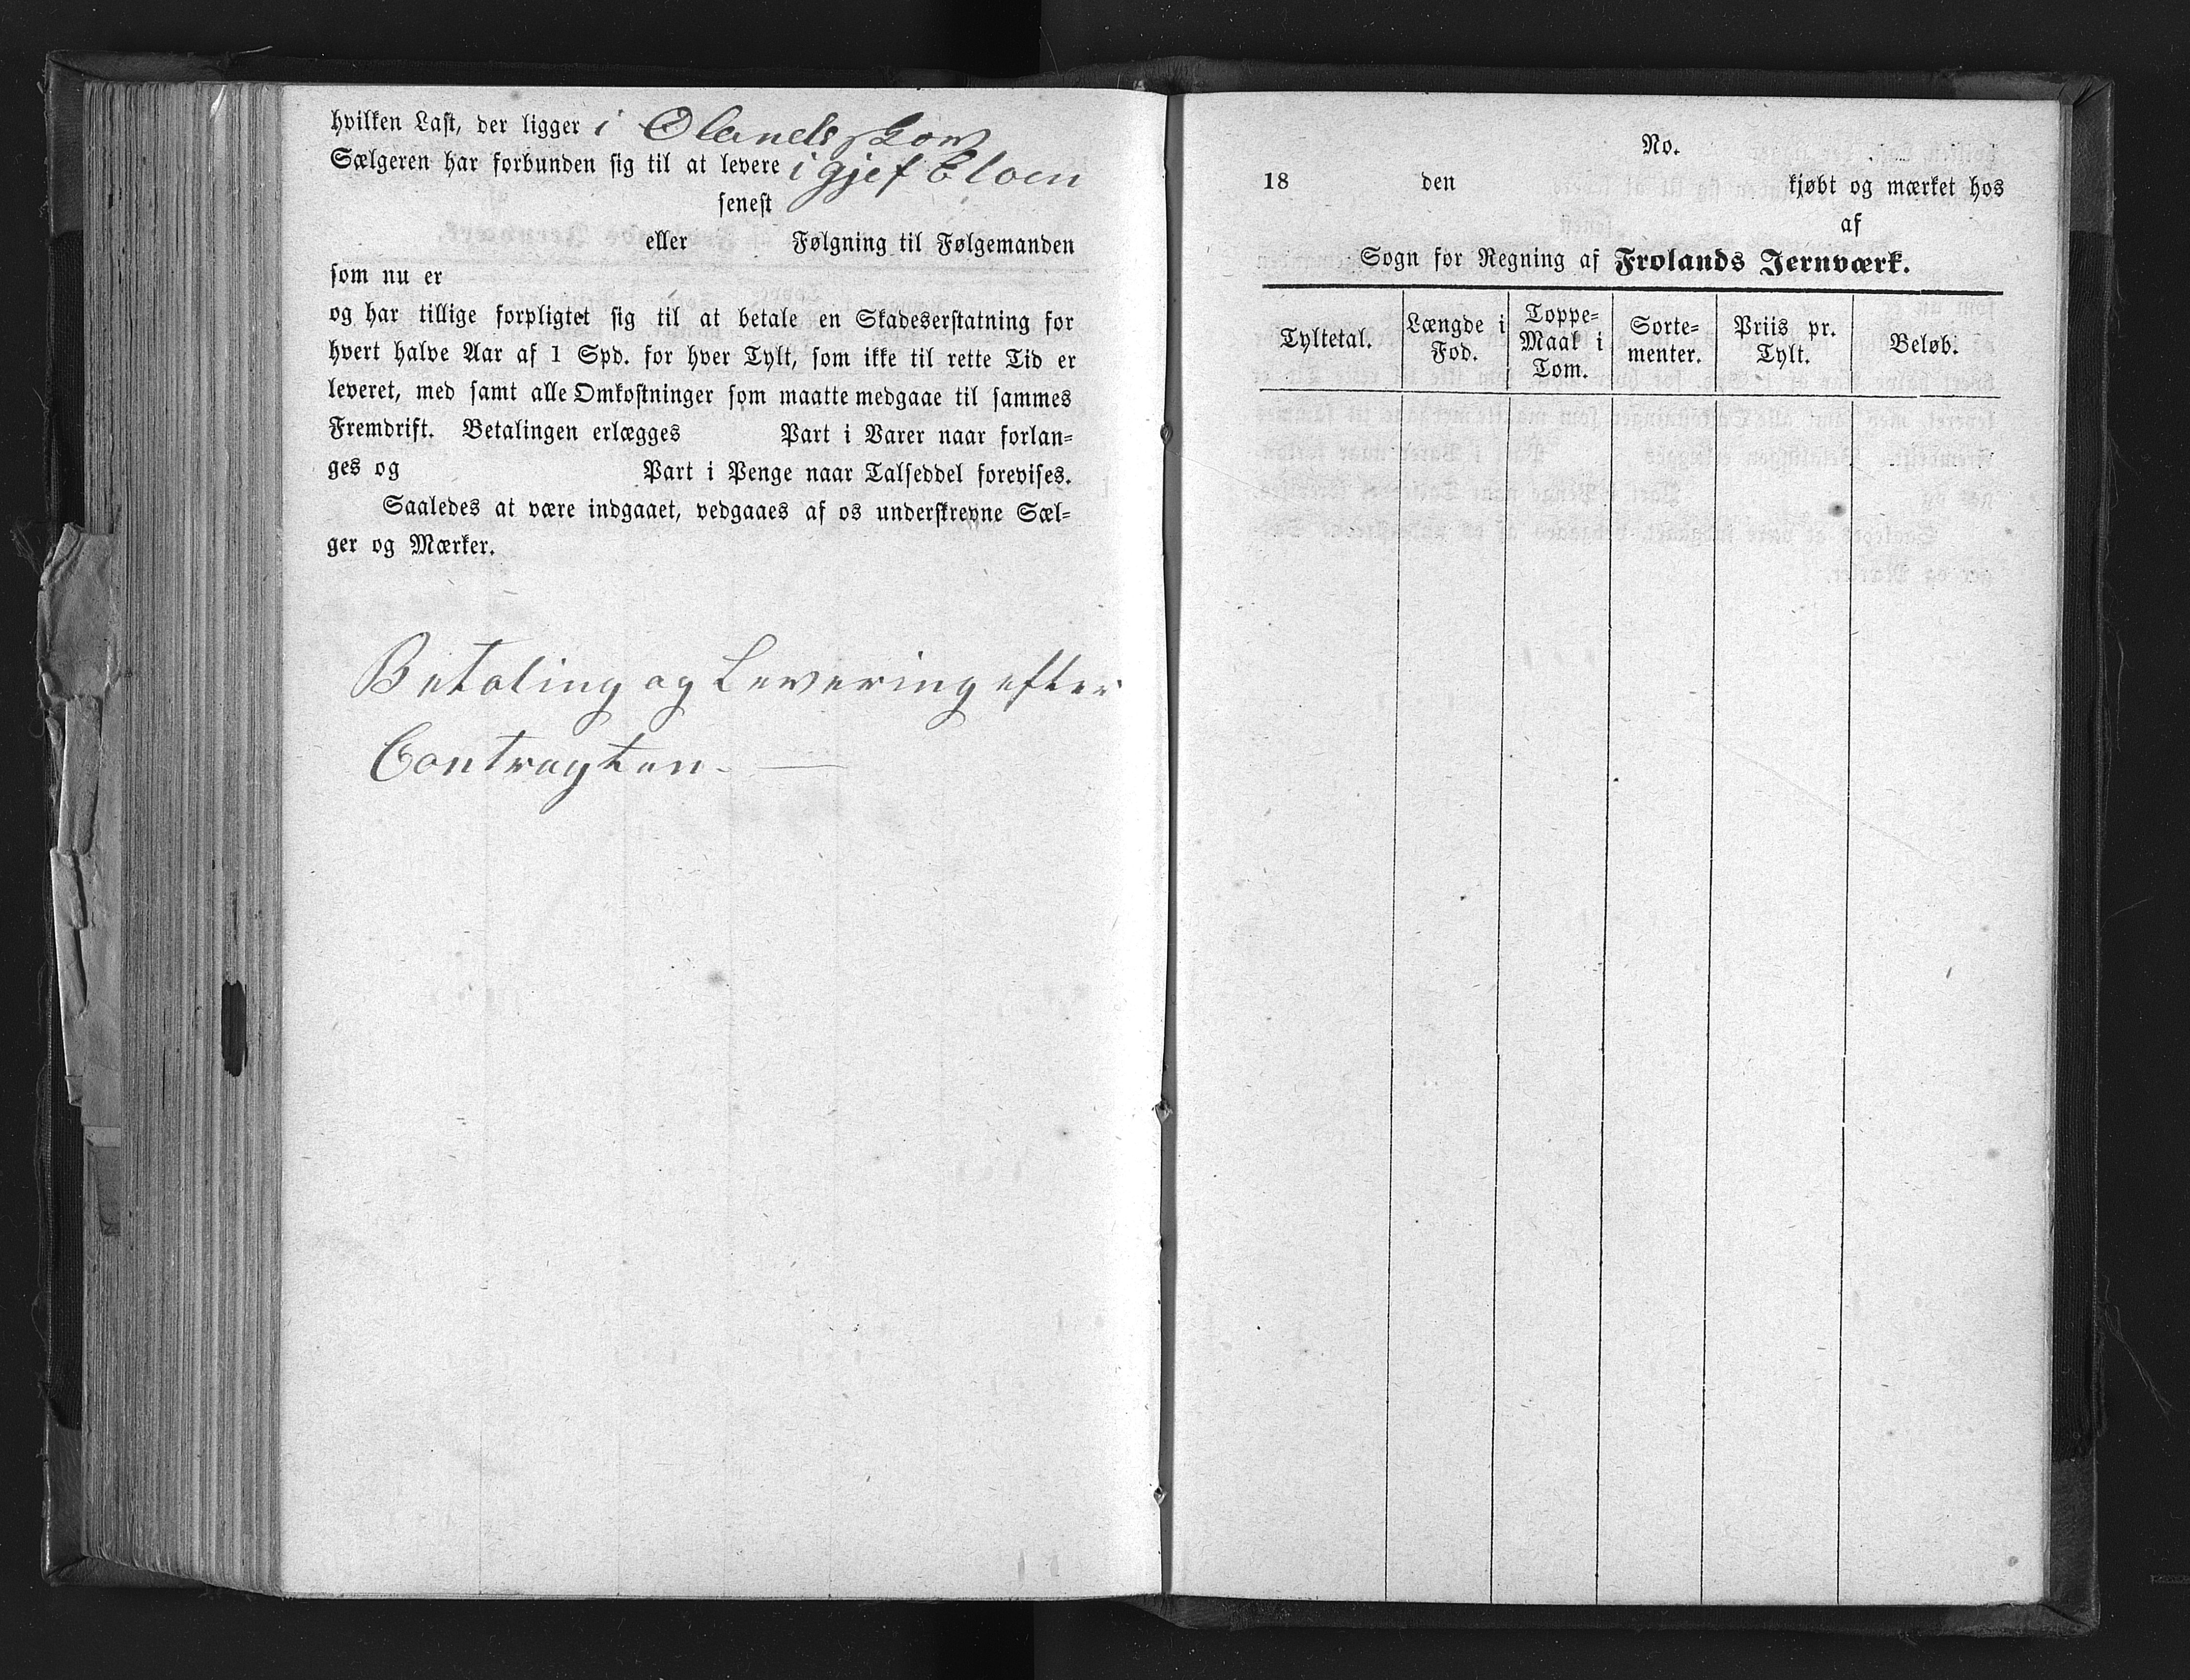 hvilken Last, der ligger i Olands skov
Sælgeren har forbunden sig til at levere i gjef Eloen
senest
eller Følgning til Følgemanden
som nu er
og har tillige forpligtet sig til at betale en Skadeserstatning for
hvert halve Aar af 1 Spd. for hver Tylt, som ikke til rette Tid er
leveret, med samt alle Omkostninger som maatte medgaae til sammes
Fremdrift. Betalingen erlægges Part i Varer naar forlan-
ges og Part i Penge naar Talseddel forevises.
Saaledes at være indgaaet, vedgaaes af os underskrevne Sæl-
ger og Mærker.
Betaling og Levering efter
Contragten.
No.
18 den kjøbt og mærket hos
af
Sogn for Regning af Frolands Jernværk.
Tyltetal. Længde i Fod. Toppe-Maal i Tom. Sorte-menter. Priis pr. Tylt. Beløb.